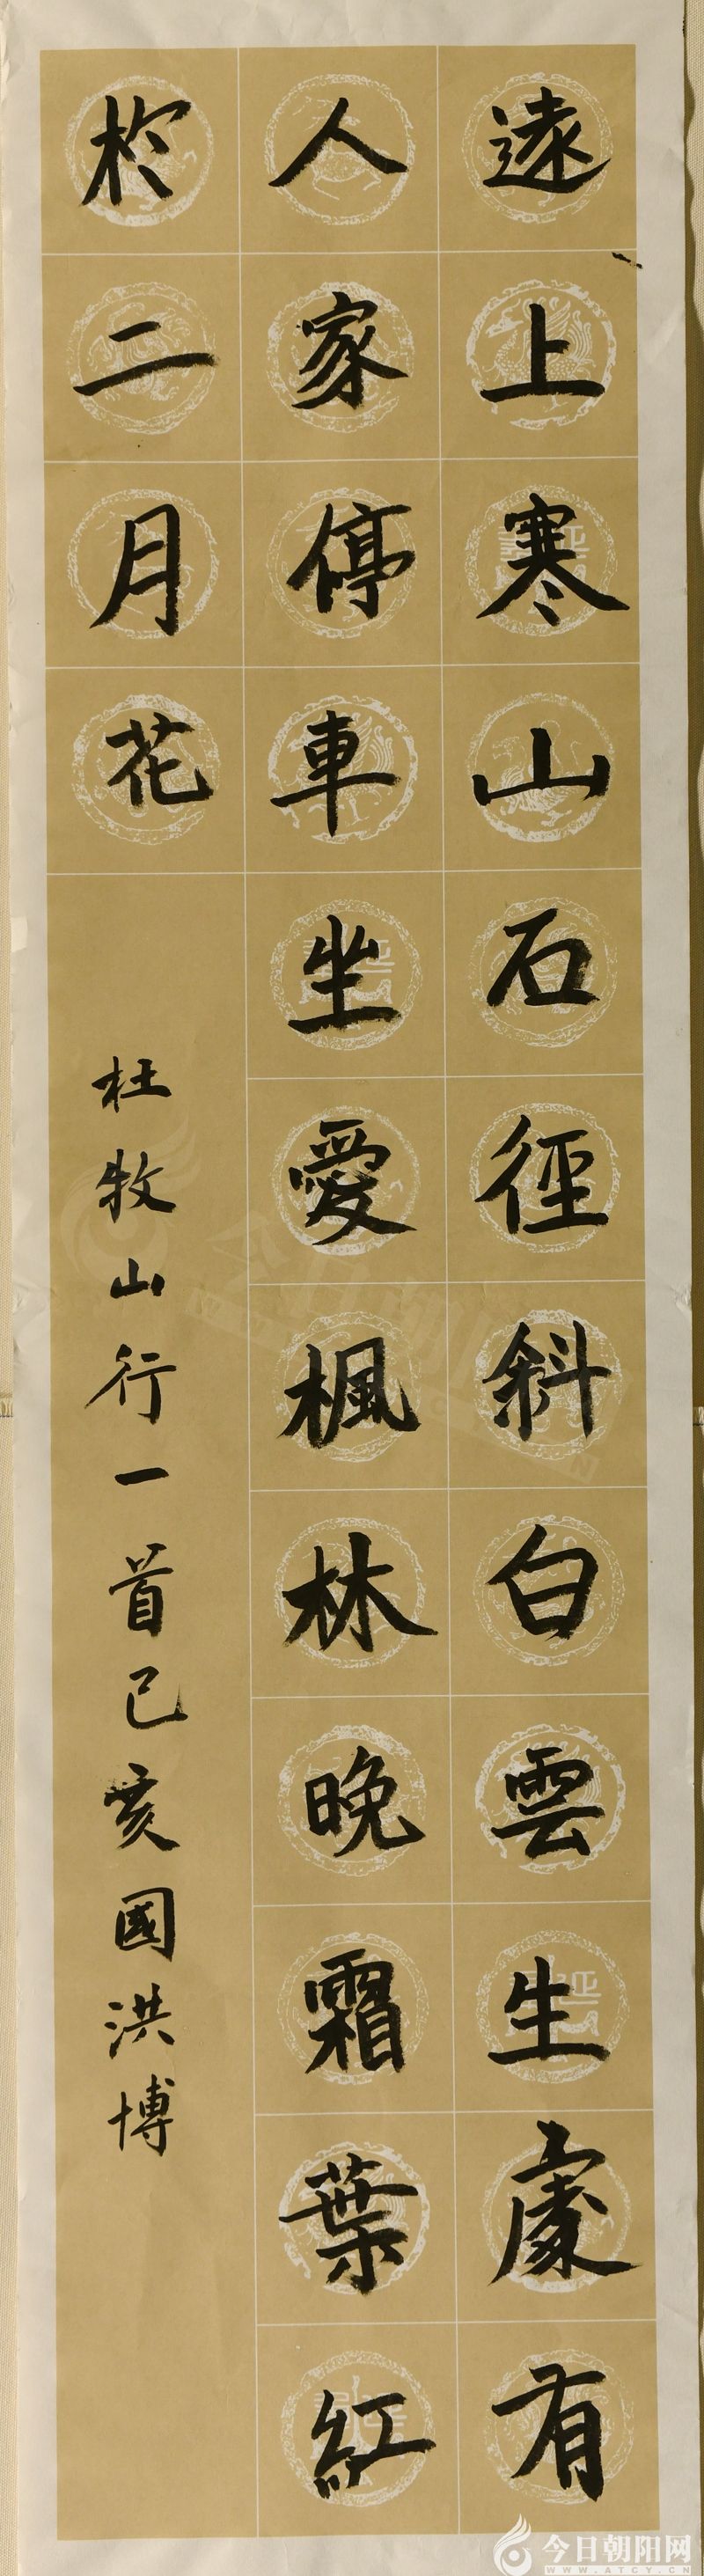 遠上寒山石徑斜白雲生處有
人家停車坐愛楓林晚霜葉紅
於二月花
杜牧山行一首己亥國洪博
今日朝阳网
WWW.ATCY.CN